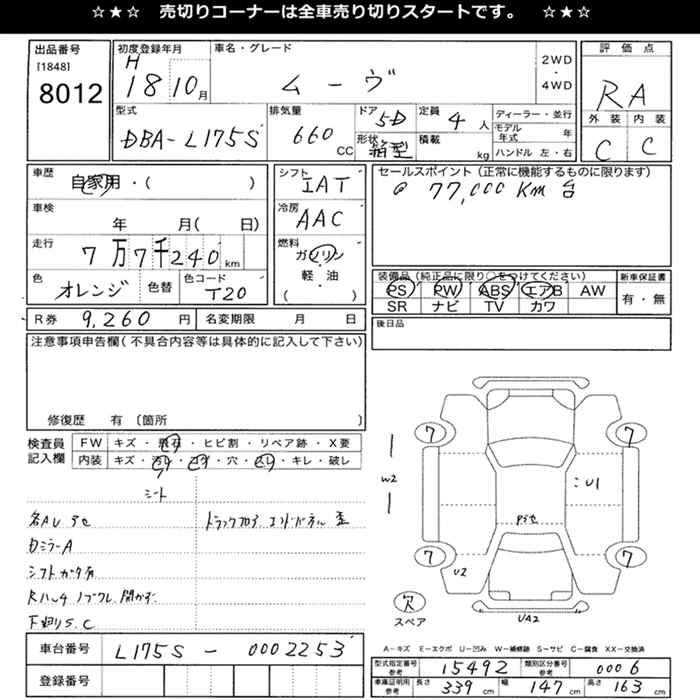 ☆★☆ 売切りコーナーは全車売り切りスタートです。 ☆★☆
出品番号
[1848]
8012
初度登録年月
H
18 10月
車名・グレード
ムーヴ
2WD
・
4WD
評価点
RA
外装 内装
C C
型式
DBA-L175S
排気量
660 CC
ドア 5D
形状 箱型
定員 4人
積載 kg
ディーラー・並行
モデル年式 年
ハンドル 左・右
車歴
自家用・( )
車検
年 月( 日)
走行
7万7千240km
色
オレンジ
色替
色コード
T20
シフト
IAT
冷房
AAC
燃料
ガソリン
・
軽・油
( )
セールスポイント(正常に機能するものに限ります)
@ 77,000Km 台
装備品(純正品に限り○をつけてください)
PS PW ABS エアB AW
SR ナビ TV カワ
新車保証書
有・無
R券 9,260 円
名変期限 月 日
後日品
注意事項申告欄(不具合内容等は具体的に記入して下さい)
修復歴 有 〔箇所 〕
検査員
記入欄
FW キズ・飛石・ヒビ割・リペア跡・X要
内装 キズ・汚れ・コゲ・穴・スレ・キレ・破レ
シート
各AU アセ
トラックフロア エンドパネル 歪
カミラーA
シフトガタ有
Rハッチ ノブワレ 開かず
下廻りS.C
車台番号
L175S - 0002253
登録番号
7 7
W2
U1
Pきセ
7 7
U2
欠
スペア
UA2
A-キズ E-エクボ U-凹み W-補修跡 S-サビ C-腐食 XX-交換済
型式指定番号 参考 15492
類別区分番号 参考 0006
車庫証明用 参考 長さ 339 cm 幅 147 cm 高さ 163 cm